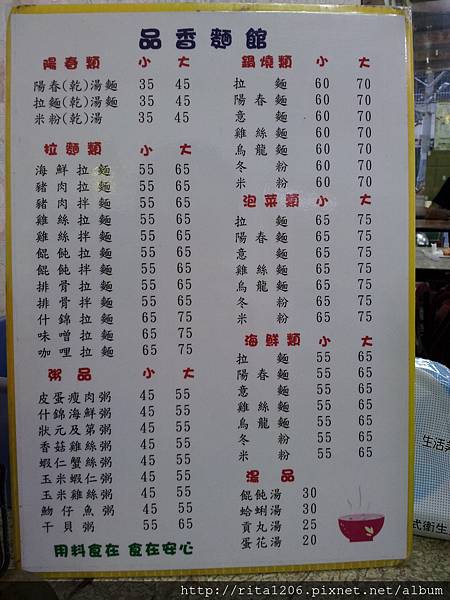 品香麵館
陽春類 小 大
陽春(乾)湯麵 35 45
拉麵(乾)湯麵 35 45
米粉(乾)湯 35 45
拉麵類 小 大
海鮮拉麵 55 65
豬肉拉麵 55 65
豬肉拌麵 55 65
雞絲拉麵 55 65
雞絲拌麵 55 65
餛飩拉麵 55 65
餛飩拌麵 55 65
排骨拉麵 55 65
排骨拌麵 55 65
什錦拉麵 65 75
味噌拉麵 65 75
咖哩拉麵 65 75
粥品 小 大
皮蛋瘦肉粥 45 55
什錦海鮮粥 45 55
狀元及第粥 45 55
香菇雞絲粥 45 55
蝦仁蟹絲粥 45 55
玉米蝦仁粥 45 55
玉米雞絲粥 45 55
魩仔魚粥 45 55
干貝粥 55 65
用料實在 食在安心
鍋燒類 小 大
拉麵 60 70
陽春麵 60 70
意麵 60 70
雞絲麵 60 70
烏龍麵 60 70
冬粉 60 70
米粉 60 70
泡菜類 小 大
拉麵 65 75
陽春麵 65 75
意麵 65 75
雞絲麵 65 75
烏龍麵 65 75
冬粉 65 75
米粉 65 75
海鮮類 小 大
拉麵 55 65
陽春麵 55 65
意麵 55 65
雞絲麵 55 65
烏龍麵 55 65
冬粉 55 65
米粉 55 65
湯品
餛飩湯 30
蛤蜊湯 30
貢丸湯 25
蛋花湯 20
生活
式衛生
http://rita1206.pixnet.net/album